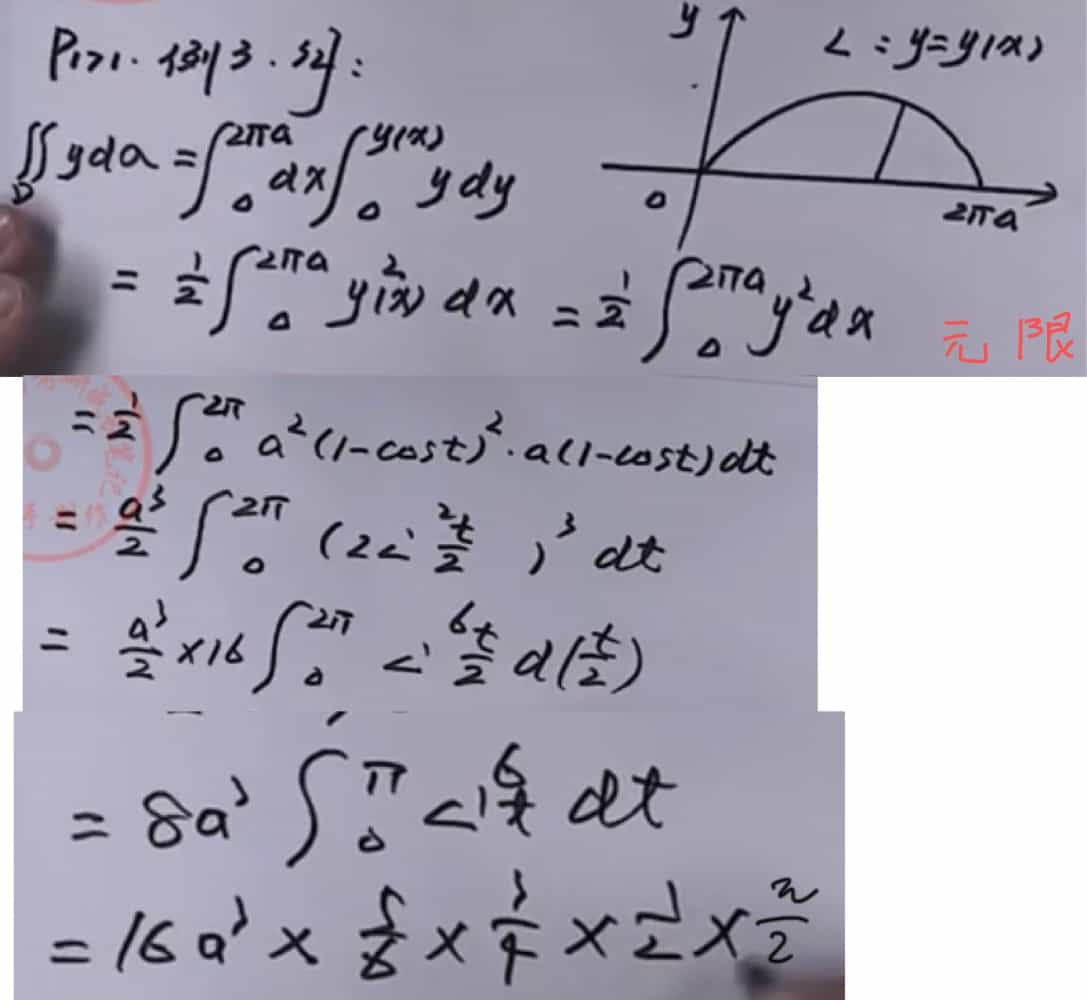 P171. 例3. 解:
y
L : y=y(x)
∬_D ydσ = ∫_0^{2πa} dx ∫_0^{y(x)} y dy
0
2πa
= 1/2 ∫_0^{2πa} y²(x) dx = 1/2 ∫_0^{2πa} y² dx
元 限
= 1/2 ∫_0^{2π} a²(1-cost)²·a(1-cost)dt
= a³/2 ∫_0^{2π} (2 sin² t/2)³ dt
= a³/2 ×16 ∫_0^{2π} sin⁶ t/2 d(t/2)
= 8a³ ∫_0^π sin⁶t dt
= 16a³ × 5/6 × 3/4 × 1/2 × π/2